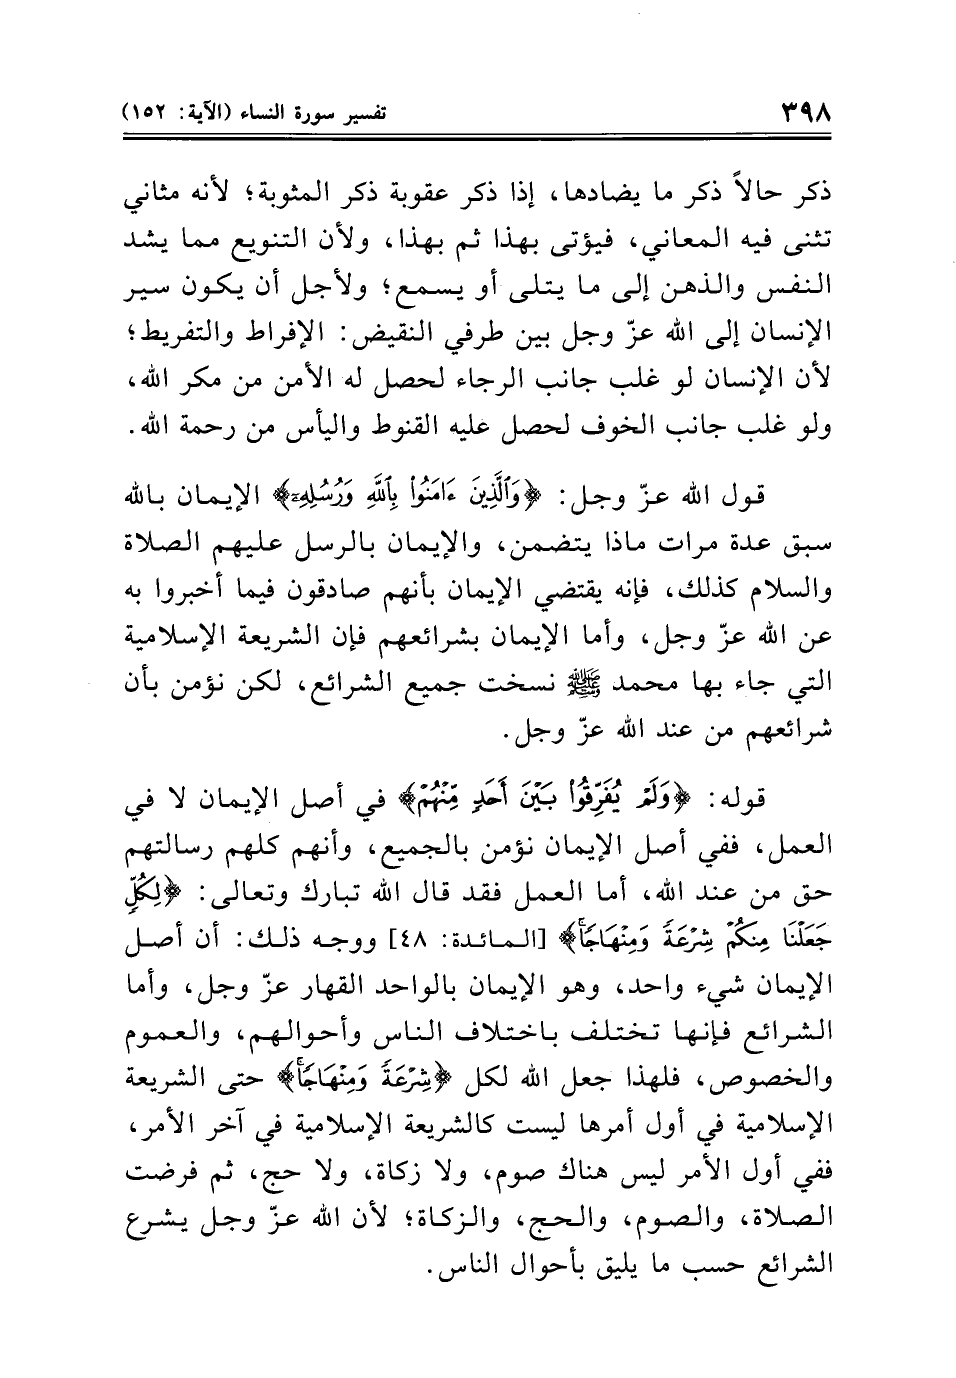 ٣٩٨ تفسير سورة النساء (الآية: ١٥٢)
ذكر حالاً ذكر ما يضادها، إذا ذكر عقوبة ذكر المثوبة؛ لأنه مثاني
تثنى فيه المعاني، فيؤتى بهذا ثم بهذا، ولأن التنويع مما يشد
النفس والذهن إلى ما يتلى أو يسمع؛ ولأجل أن يكون سير
الإنسان إلى الله عزّ وجل بين طرفي النقيض: الإفراط والتفريط؛
لأن الإنسان لو غلب جانب الرجاء لحصل له الأمن من مكر الله،
ولو غلب جانب الخوف لحصل عليه القنوط واليأس من رحمة الله.
قول الله عزّ وجل: ﴿وَٱلَّذِينَ ءَامَنُوا۟ بِٱللَّهِ وَرُسُلِهِۦ﴾ الإيمان بالله
سبق عدة مرات ماذا يتضمن، والإيمان بالرسل عليهم الصلاة
والسلام كذلك، فإنه يقتضي الإيمان بأنهم صادقون فيما أخبروا به
عن الله عزّ وجل، وأما الإيمان بشرائعهم فإن الشريعة الإسلامية
التي جاء بها محمد ﷺ نسخت جميع الشرائع، لكن نؤمن بأن
شرائعهم من عند الله عزّ وجل.
قوله: ﴿وَلَمْ يُفَرِّقُوا۟ بَيْنَ أَحَدٍ مِّنْهُمْ﴾ في أصل الإيمان لا في
العمل، ففي أصل الإيمان نؤمن بالجميع، وأنهم كلهم رسالتهم
حق من عند الله، أما العمل فقد قال الله تبارك وتعالى: ﴿لِكُلٍّ
جَعَلْنَا مِنكُمْ شِرْعَةً وَمِنْهَاجًا ۚ﴾ [المائدة: ٤٨] ووجه ذلك: أن أصل
الإيمان شيء واحد، وهو الإيمان بالواحد القهار عزّ وجل، وأما
الشرائع فإنها تختلف باختلاف الناس وأحوالهم، والعموم
والخصوص، فلهذا جعل الله لكل ﴿شِرْعَةً وَمِنْهَاجًا ۚ﴾ حتى الشريعة
الإسلامية في أول أمرها ليست كالشريعة الإسلامية في آخر الأمر،
ففي أول الأمر ليس هناك صوم، ولا زكاة، ولا حج، ثم فرضت
الصلاة، والصوم، والحج، والزكاة؛ لأن الله عزّ وجل يشرع
الشرائع حسب ما يليق بأحوال الناس.